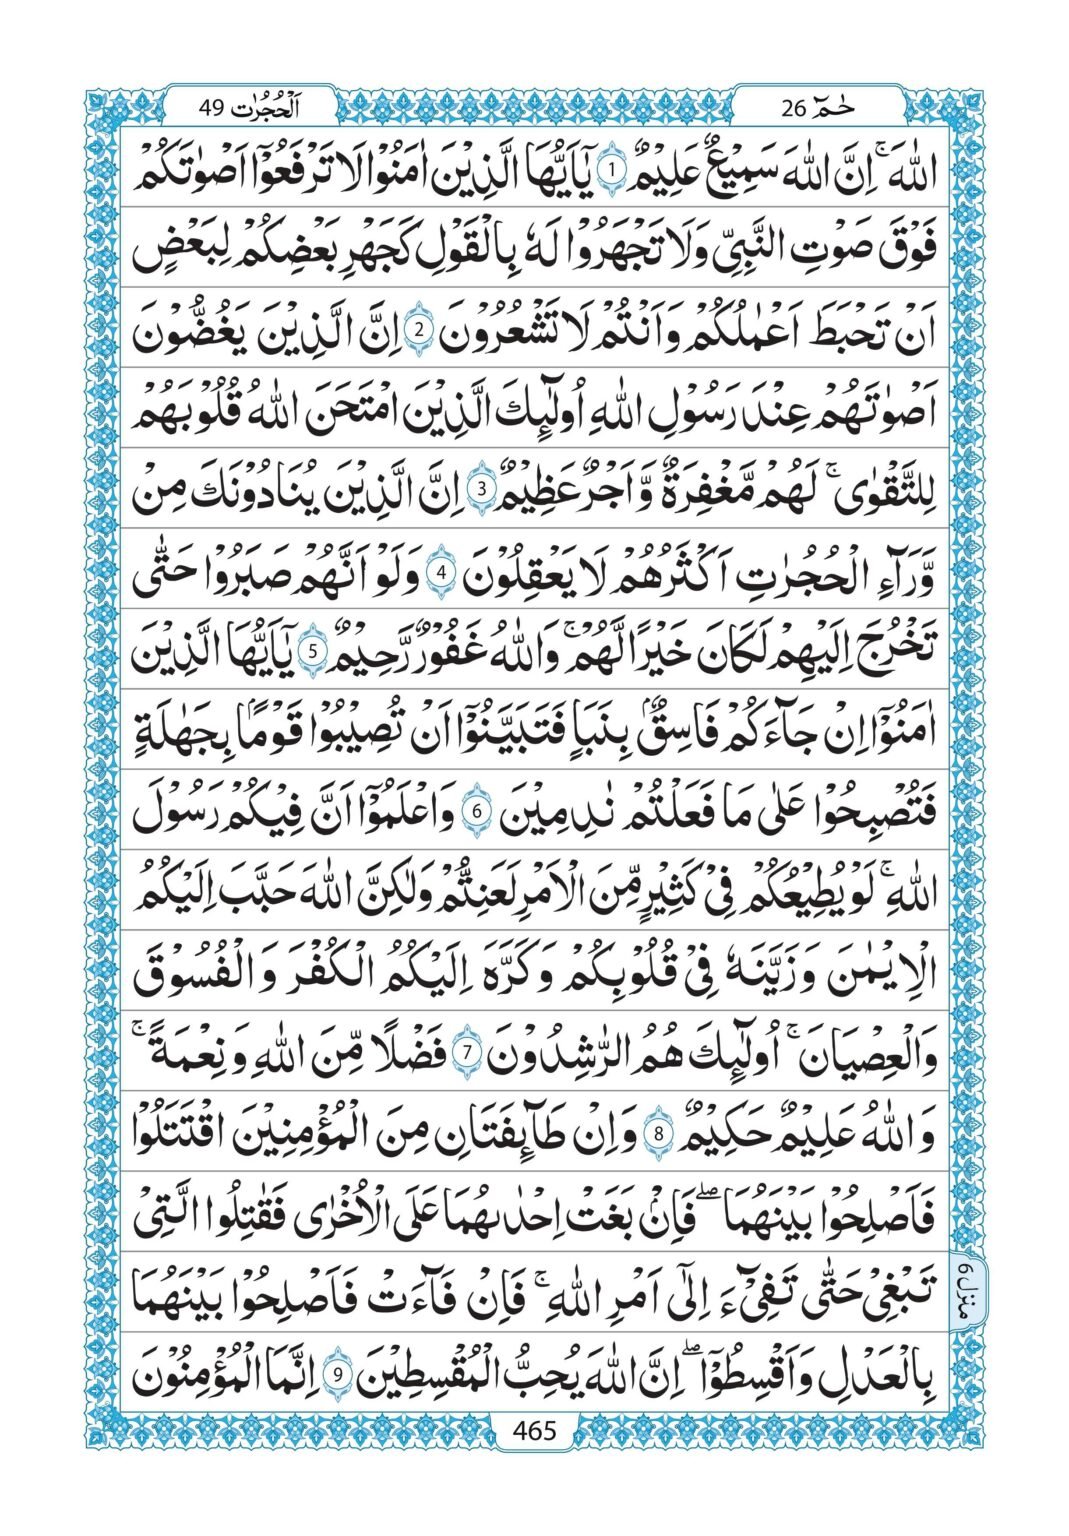 حٰمٓ 26
اَلْحُجُرٰت 49
اللّٰهَ ۚ اِنَّ اللّٰهَ سَمِيْعٌ عَلِيْمٌ 1 يٰۤاَيُّهَا الَّذِيْنَ اٰمَنُوْا لَا تَرْفَعُوْۤا اَصْوٰتَكُمْ
فَوْقَ صَوْتِ النَّبِيِّ وَلَا تَجْهَرُوْا لَهٗ بِالْقَوْلِ كَجَهْرِ بَعْضِكُمْ لِبَعْضٍ
اَنْ تَحْبَطَ اَعْمٰلُكُمْ وَاَنْتُمْ لَا تَشْعُرُوْنَ 2 اِنَّ الَّذِيْنَ يَغُضُّوْنَ
اَصْوٰتَهُمْ عِنْدَ رَسُوْلِ اللّٰهِ اُولٰٓئِكَ الَّذِيْنَ امْتَحَنَ اللّٰهُ قُلُوْبَهُمْ
لِلتَّقْوٰى ۚ لَهُمْ مَّغْفِرَةٌ وَّاَجْرٌ عَظِيْمٌ 3 اِنَّ الَّذِيْنَ يُنَادُوْنَكَ مِنْ
وَّرَآءِ الْحُجُرٰتِ اَكْثَرُهُمْ لَا يَعْقِلُوْنَ 4 وَلَوْ اَنَّهُمْ صَبَرُوْا حَتّٰى
تَخْرُجَ اِلَيْهِمْ لَكَانَ خَيْرًا لَّهُمْ ۚ وَاللّٰهُ غَفُوْرٌ رَّحِيْمٌ 5 يٰۤاَيُّهَا الَّذِيْنَ
اٰمَنُوْۤا اِنْ جَآءَكُمْ فَاسِقٌۢ بِنَبَاٍ فَتَبَيَّنُوْۤا اَنْ تُصِيْبُوْا قَوْمًۢا بِجَهٰلَةٍ
فَتُصْبِحُوْا عَلٰى مَا فَعَلْتُمْ نٰدِمِيْنَ 6 وَاعْلَمُوْۤا اَنَّ فِيْكُمْ رَسُوْلَ
اللّٰهِ ۚ لَوْ يُطِيْعُكُمْ فِيْ كَثِيْرٍ مِّنَ الْاَمْرِ لَعَنِتُّمْ وَلٰكِنَّ اللّٰهَ حَبَّبَ اِلَيْكُمُ
الْاِيْمٰنَ وَزَيَّنَهٗ فِيْ قُلُوْبِكُمْ وَكَرَّهَ اِلَيْكُمُ الْكُفْرَ وَالْفُسُوْقَ
وَالْعِصْيَانَ ۚ اُولٰٓئِكَ هُمُ الرّٰشِدُوْنَ 7 فَضْلًا مِّنَ اللّٰهِ وَنِعْمَةً ۚ
وَاللّٰهُ عَلِيْمٌ حَكِيْمٌ 8 وَاِنْ طَآئِفَتَانِ مِنَ الْمُؤْمِنِيْنَ اقْتَتَلُوْا
فَاَصْلِحُوْا بَيْنَهُمَا ۖ فَاِنْۢ بَغَتْ اِحْدٰىهُمَا عَلَى الْاُخْرٰى فَقٰتِلُوا الَّتِيْ
تَبْغِيْ حَتّٰى تَفِيْٓءَ اِلٰٓى اَمْرِ اللّٰهِ ۚ فَاِنْ فَآءَتْ فَاَصْلِحُوْا بَيْنَهُمَا
بِالْعَدْلِ وَاَقْسِطُوْا ۖ اِنَّ اللّٰهَ يُحِبُّ الْمُقْسِطِيْنَ 9 اِنَّمَا الْمُؤْمِنُوْنَ
منزل 6
465